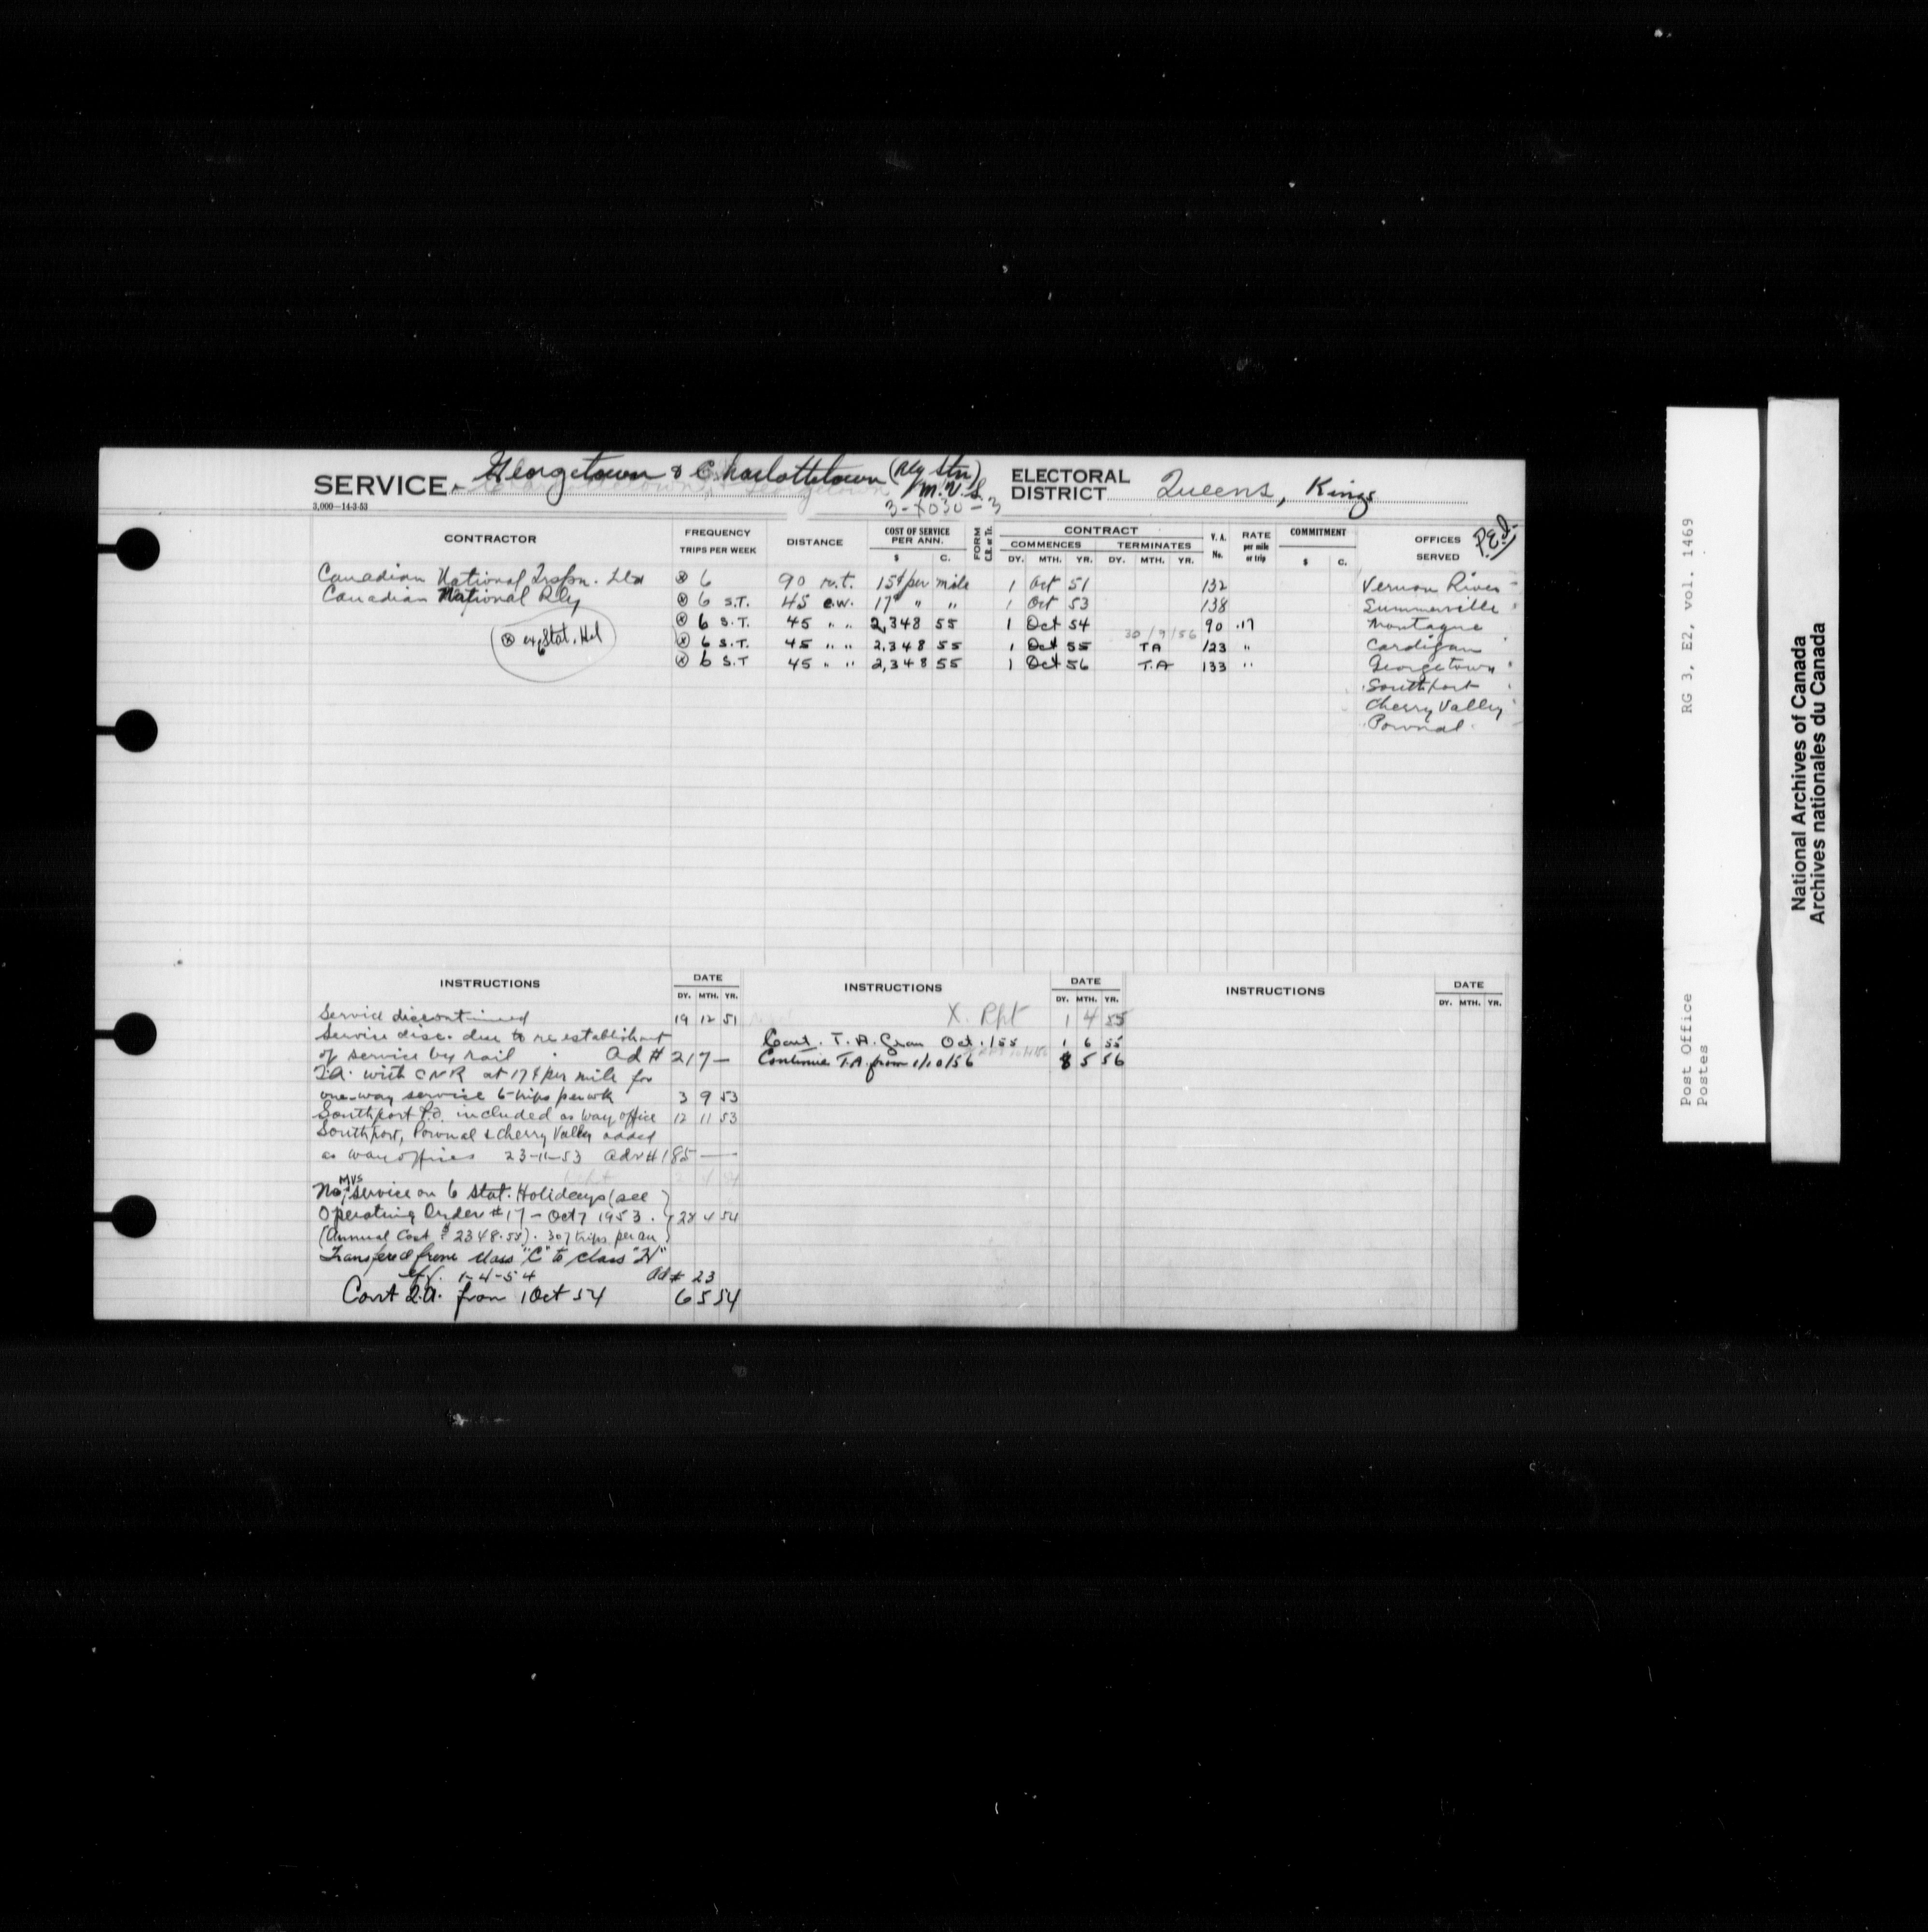 SERVICE. Georgetown & Charlottetown (Rly Stn)
M.V.S.
3,000—14-3-53
ELECTORAL
DISTRICT Queens, Kings
P.E.I.
CONTRACTOR
FREQUENCY
TRIPS PER WEEK
DISTANCE
COST OF SERVICE
PER ANN.
$ C.
FORM
C.B. or Tr.
CONTRACT
COMMENCES TERMINATES
DY. MTH. YR. DY. MTH. YR.
V. A.
No.
RATE
per mile
or trip
COMMITMENT
$ C.
OFFICES
SERVED
Canadian National Trspn. Ltd ⊗ 6 90 r.t. 15¢ per mile 1 Oct 51 132 Vernon River
Canadian National Rly ⊗ 6 S.T. 45 o.w. 17¢ " " 1 Oct 53 138 Summerville
⊗ 6 S.T. 45 " " 2,348 55 1 Oct 54 90 .17 Montague
⊗ ex 6 Stat. Hol
30/9/56
⊗ 6 S.T. 45 " " 2,348 55 1 Oct 55 TA 123 " Cardigan
⊗ 6 S.T 45 " " 2,348 55 1 Oct 56 T.A 133 " Georgetown
Southport
Cherry Valley
Pownal
INSTRUCTIONS
DATE
DY. MTH. YR.
Service discontinued 19 12 51
Service disc. due to re establishment
of service by rail Ad # 217 —
T.A. with CNR at 17¢ per mile for
one-way service 6 trips per wk 3 9 53
Southport P.O. included as way office 12 11 53
Southport, Pownal & Cherry Valley added
as way offices 23-11-53 Adv # 185 —
No MVS service on 6 Stat. Holidays (see
Operating Order # 17 - Oct 7 1953. 28 4 54
(Annual Cost $2348.55). 307 trips per an.)
Transfered from Class "C" to class "H"
eff. 1-4-54 Ad # 23
Cont T.A. from 1 Oct 54 6 5 54
INSTRUCTIONS
DATE
DY. MTH. YR.
X. Rpt 1 4 55
Cont. T.A. from Oct. 1/55 1 6 55
Continue T.A. from 1/10/56 8 5 56
INSTRUCTIONS
DATE
DY. MTH. YR.
Post Office RG 3, E2, vol. 1469
Postes
National Archives of Canada
Archives nationales du Canada